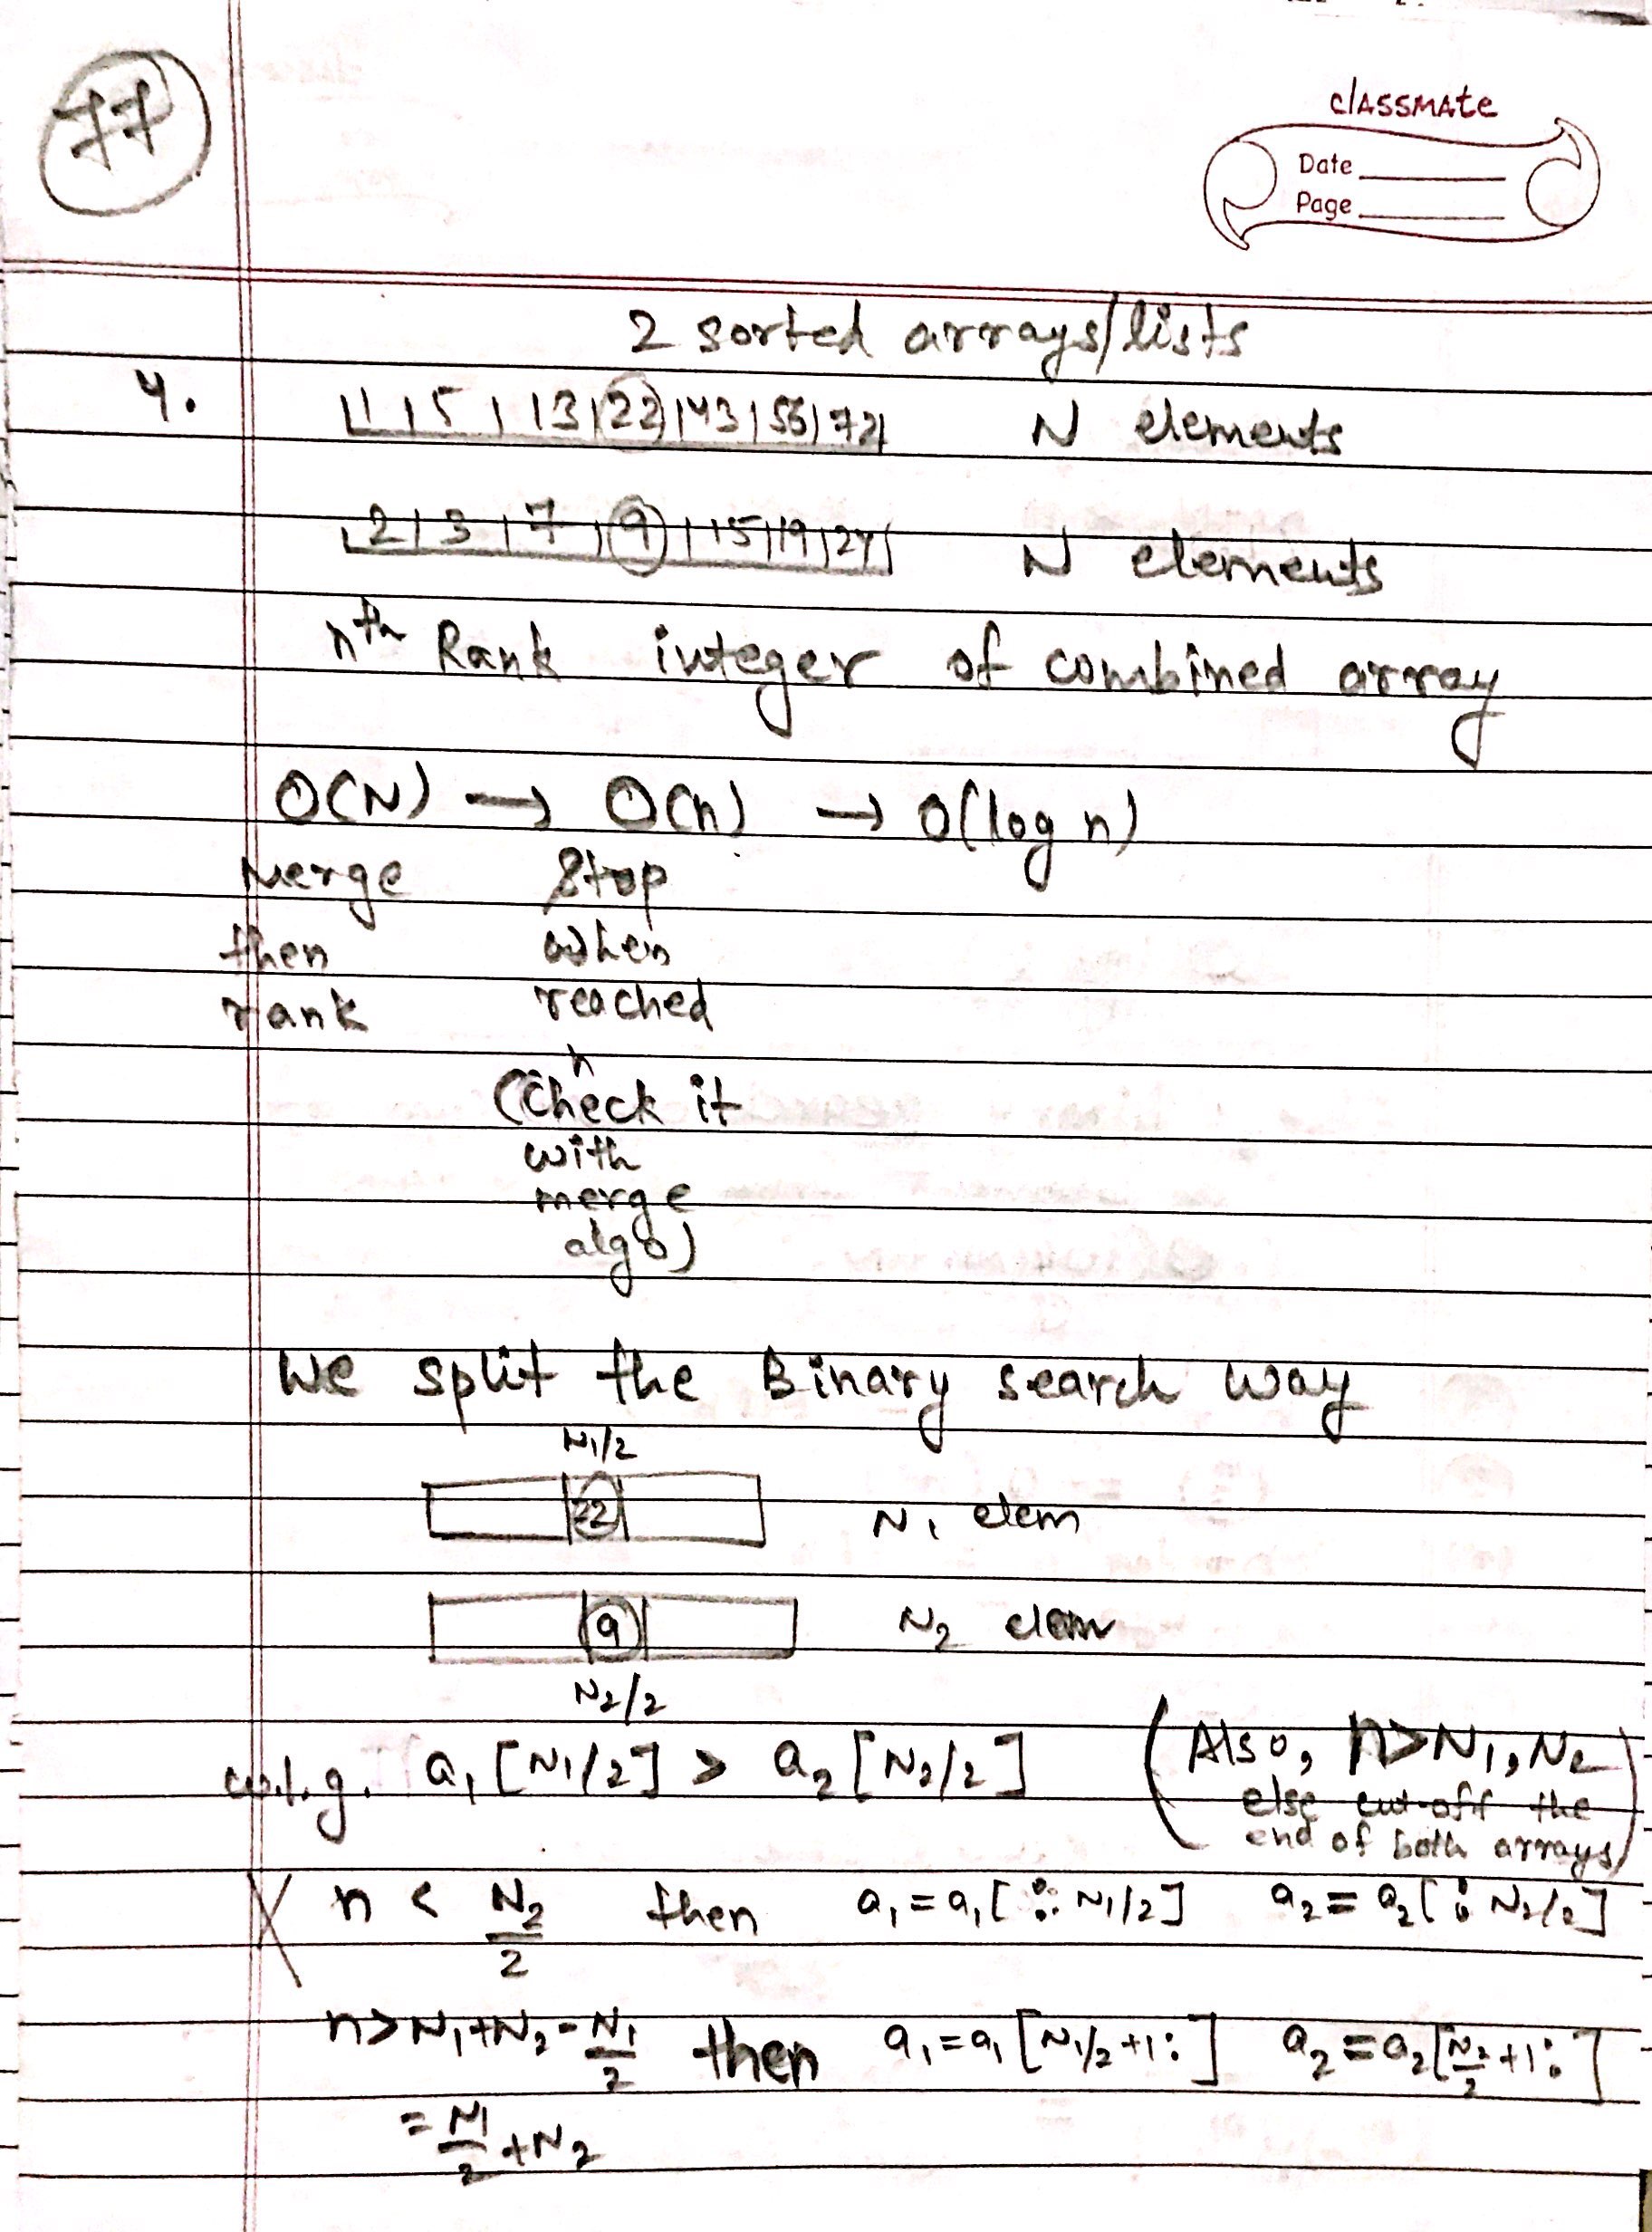 77
classmate
Date
Page
2 sorted arrays/lists
4. 1 | 5 | 13 | 22 | 43 | 56 | 72 N elements
2 | 3 | 7 | 9 | 15 | 19 | 24 N elements
nth Rank integer of combined array
O(N) → O(n) → O(log n)
Merge Stop
then when
rank reached
n
(Check it
with
merge
algo)
We split the Binary search way
N1/2
22 N1 elem
9 N2 elem
N2/2
w.l.g. a1[N1/2] > a2[N2/2] (Also, n>N1,N2
else cut-off the
end of both arrays)
n < N2/2 then a1=a1[:N1/2] a2=a2[:N2/2]
n>N1+N2-N1/2 then a1=a1[N1/2+1:] a2=a2[N2/2+1:]
=N1/2+N2